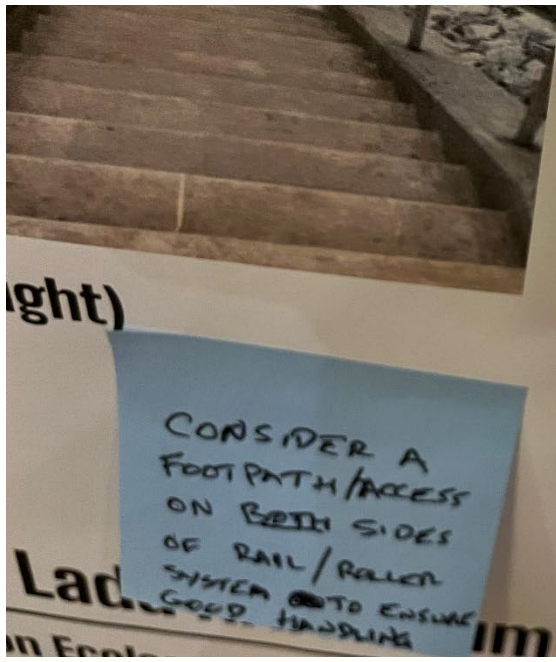 ght)
CONSIDER A
FOOTPATH/ACCESS
ON BOTH SIDES
OF RAIL/ROLLER
SYSTEM TO ENSURE
GOOD HANDLING
Lad
um
on Ecolo